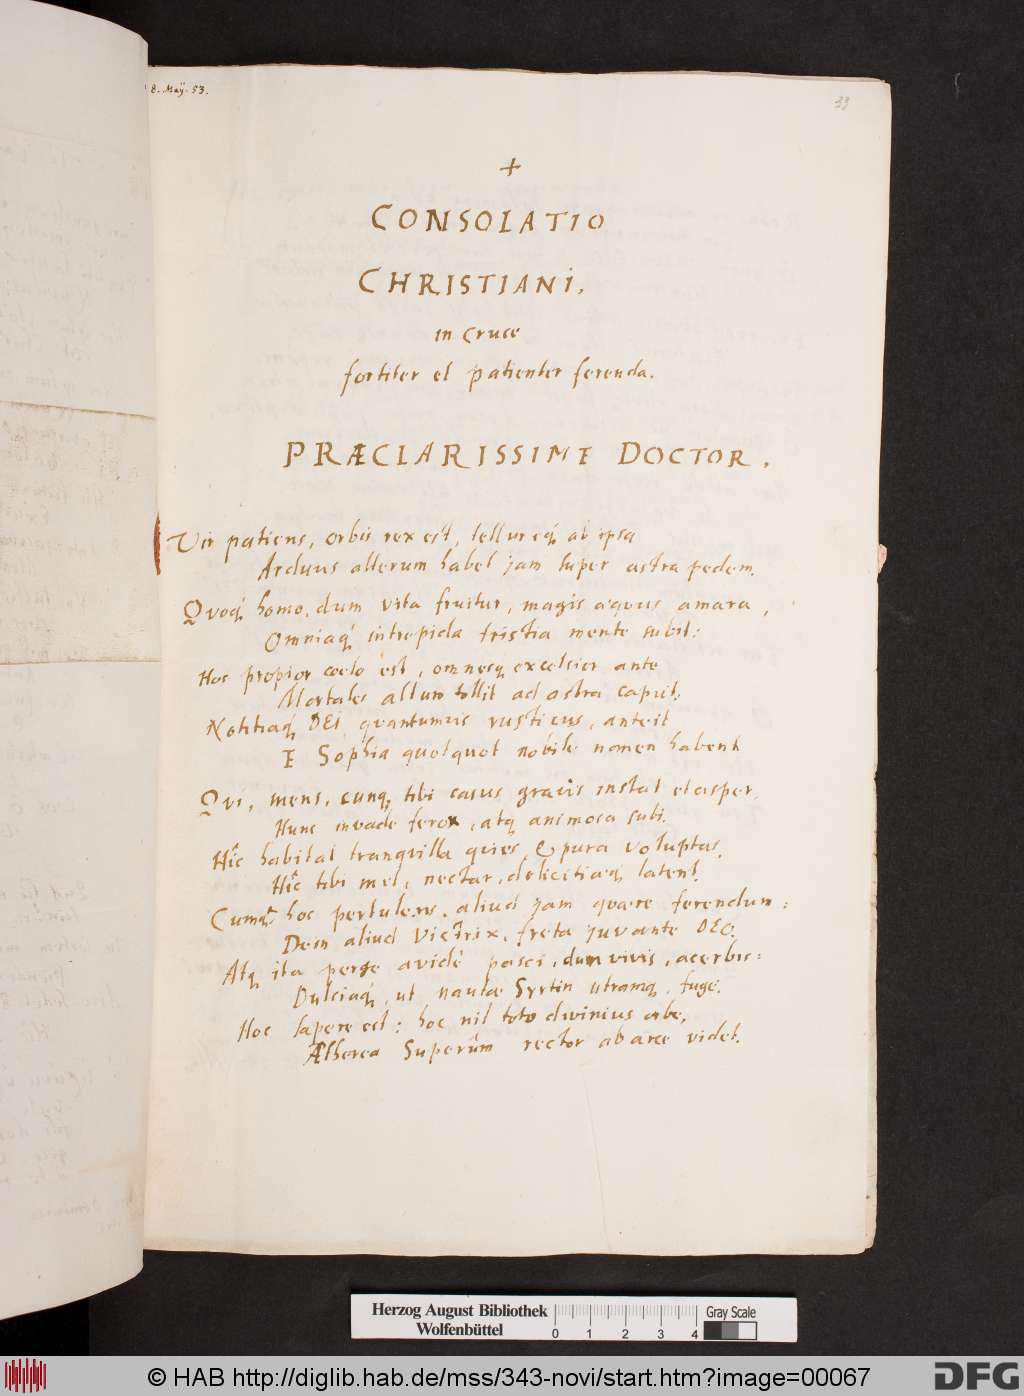 8. Maÿ. 53.
39
+
CONSOLATIO
CHRISTIANI,
in Cruce
fortiter et patienter ferenda.
PRÆCLARISSIME DOCTOR.
Vir patiens, orbis rex est, tellureq́ ab ipsa
Arduus alterum habet jam super astra pedem.
Qvoq́ homo, dum vita fruitur, magis aequus amara,
Omniaq́ intrepida tristia mente subit:
Hoc propior coelo est, omnesq́ excelsior ante
Mortales altum tollit ad astra caput.
Notitiaq́ DEI quantumvis rusticus, anteit
E Sophia quotquot nobile nomen habent.
Qvi, mens, cunq, tibi casus gravis instat et asper,
Hunc invade ferox, atq animosa subi.
Hîc habitat tranqvilla qvies, & pura voluptas,
Hîc tibi mel, nectar, deliciaeq́ latent.
Cumq́ hoc pertuleris, aliud jam quaere ferendum:
Dein aliud victrix, freta juvante DEO.
Atq ita perge avidè pasci, dum vivis, acerbis:
Dulciaq́, ut nautae Syrtin utramq, fuge.
Hoc sapere est: hoc nil toto divinius orbe,
Ætherea Superûm rector ab arce videt.
Herzog August Bibliothek
Wolfenbüttel
0 1 2 3 4
Gray Scale
© HAB http://diglib.hab.de/mss/343-novi/start.htm?image=00067
DFG